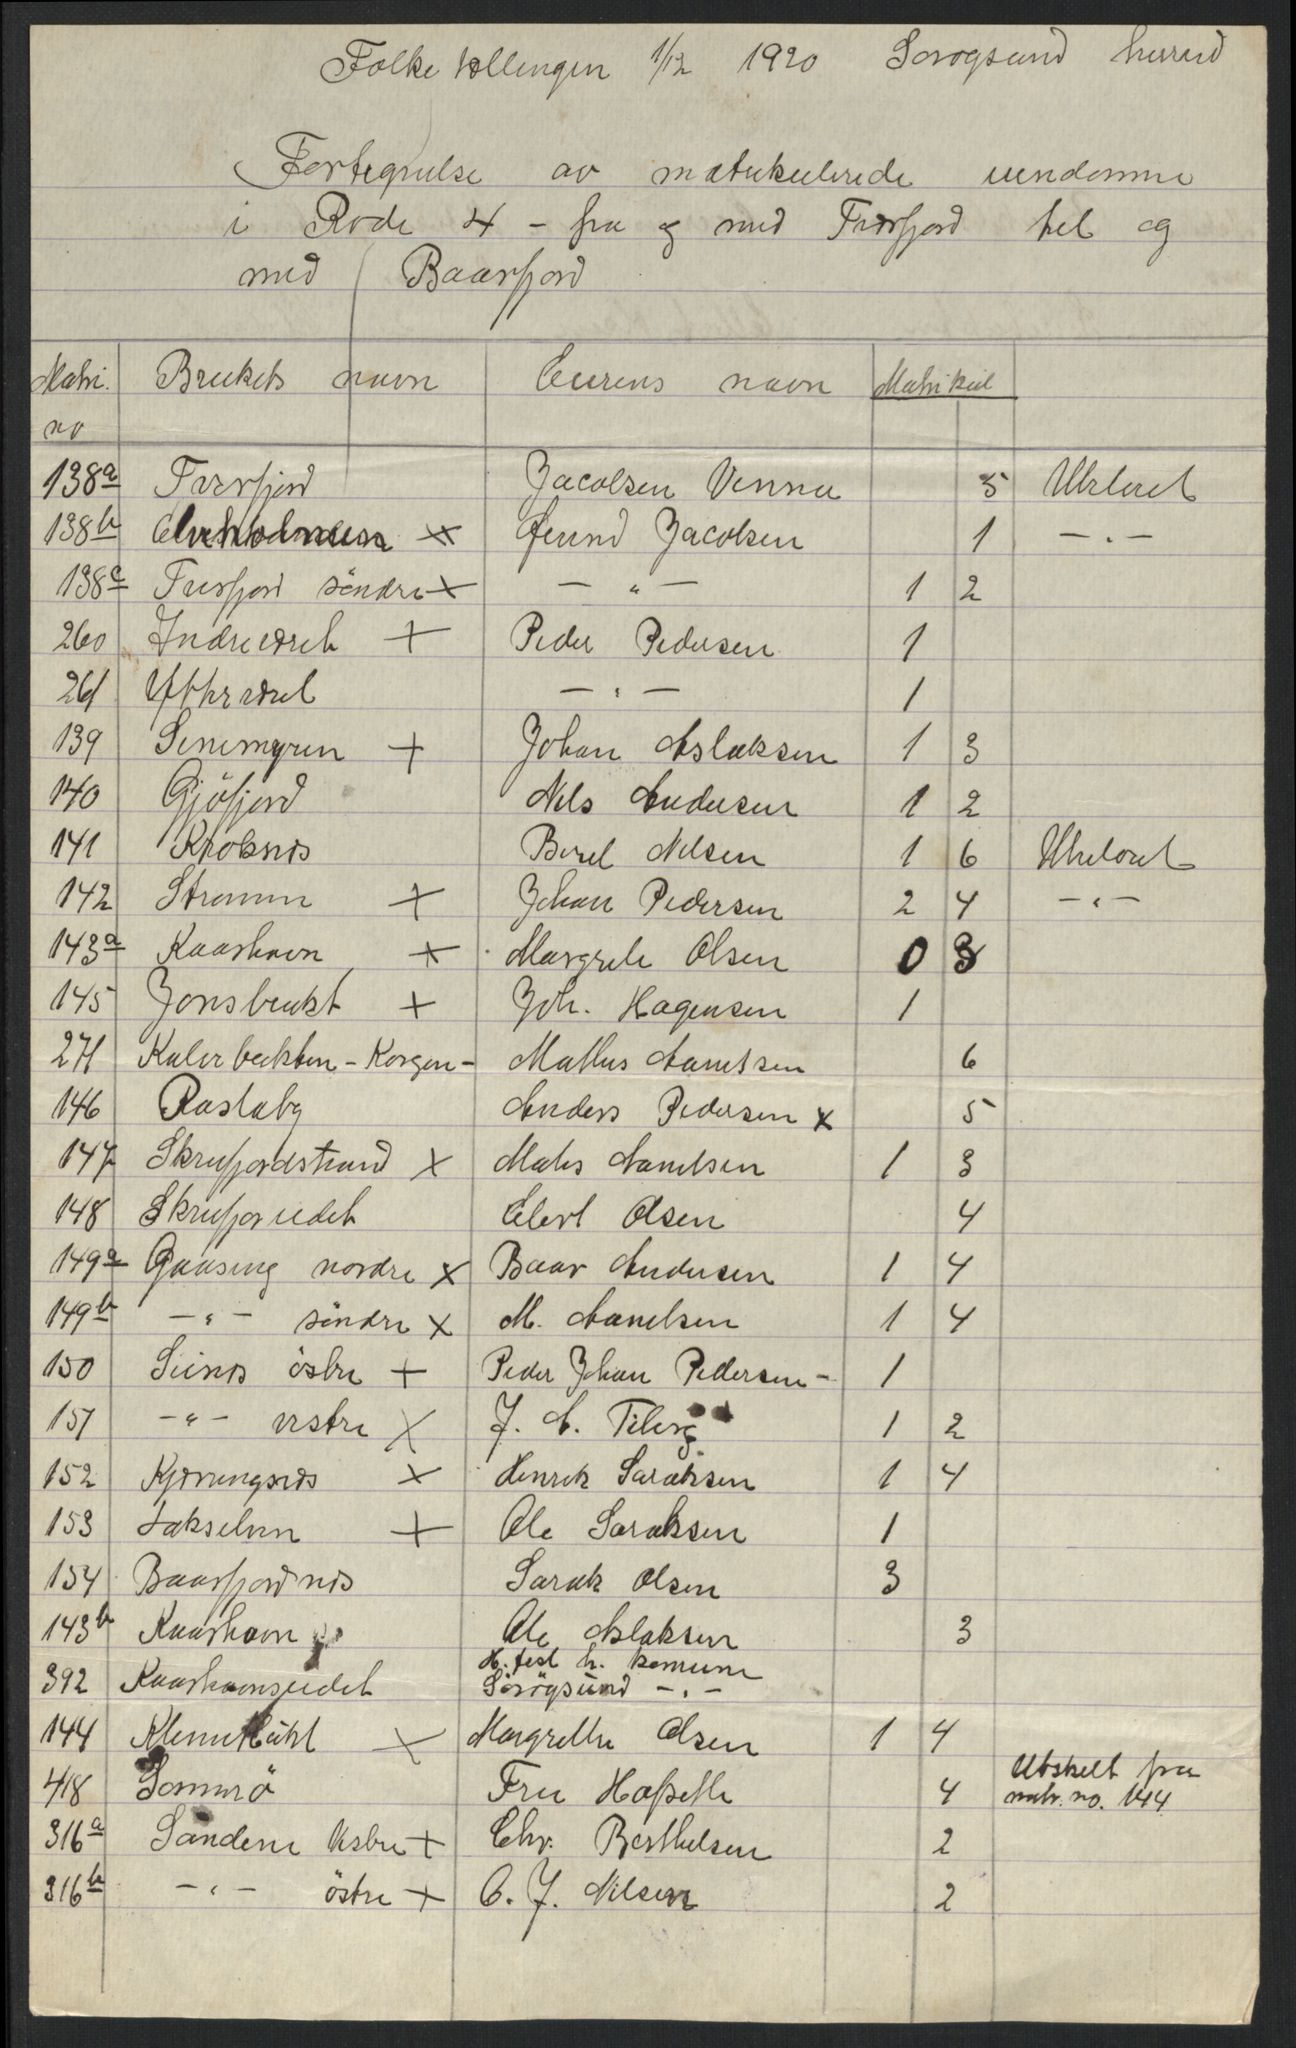 Folketellingen 1/12 1920 Sörögsund herred
Fortegnelse av matrikulerede eiendomme
i Rode 4 - fra og med Færfjord til og
med Baarfjord
Matri. Brukets navn Eierens navn Matrikul
no
138a Færfjord Jacobsen Vinna 5 Utelært
138b Elveholmen × Jacobsen 1 - " -
138c Færfjord söndre × - " - 1 2
260 Indreværet + Peder Pedersen 1
261 Ytterværet - " - 1
139 + Johan Aslaksen 1 3
140 Gjöfjord Nils Andersen 1 2
141 Kroknes Berel Nilsen 1 6
142 Strömmen + Johan Pedersen 2 4 - " -
143a Kaarhavn × Margrete Olsen 0 3
145 Jonsbukt + Joh. Hagensen 1
271 - Korgen - Mathis 6
146 Rastaby Anders Pedersen × 5
147 Skreifjordstrand × Mathis 1 3
148 Skreifjoreidet Elert Olsen 4
149a Gaasung nordre × Baar Andersen 1 4
149b - " - söndre × M. 1 4
150 Seines östre + Peder Johan Pedersen - 1
151 - " - vestre × J. A. Tiberg 1 2
152 Kjærringnes × Henrik Saraksen 1 4
153 Lakselven + Ole Saraksen 1
154 Baarfjordnes Sarak Olsen 3
143b Kaarhavn Ole Aslaksen 3
H.fest h. komune
392 Kaarhavnseidet Sörögsund - " -
144 Klemetbukt × Margrethe Olsen 1 4
418 Sommerö Fru 4 Utskilt fra
matr. no. 144
316a Sandene Vestre + Chr. Berthelsen 2
316b - " - östre + C. J. Nilsen 2